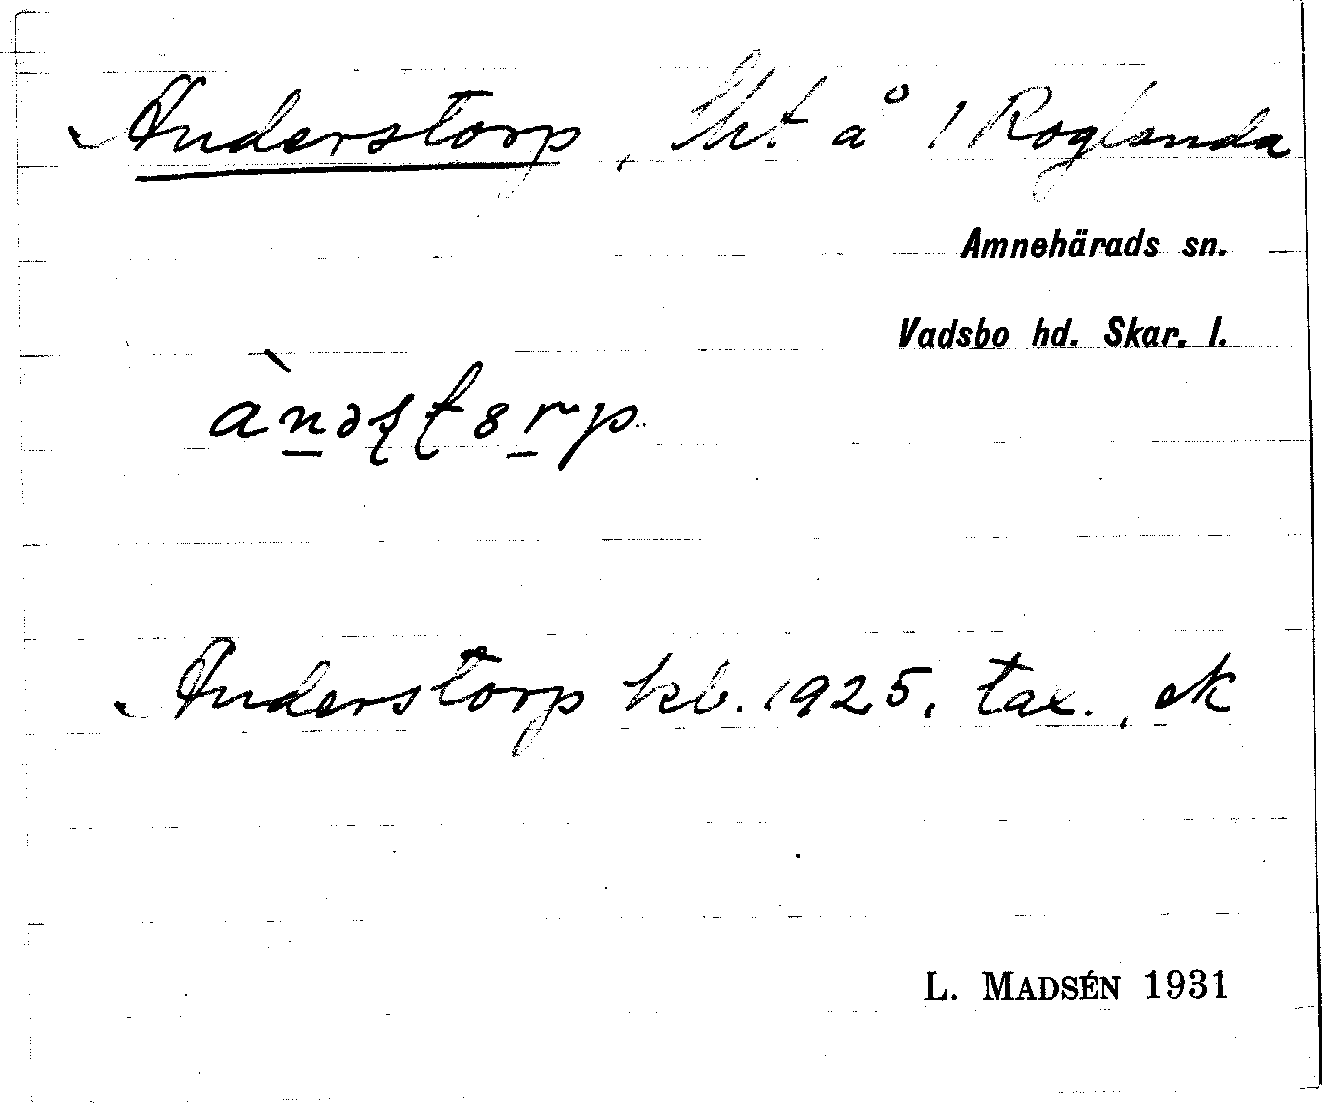 Anderstorp, lht å 1 Roglanda
Amnehärads sn.
Vadsbo hd. Skar. l.
Anderstorp kb. 1925, tax., ek
L. MADSÉN 1931